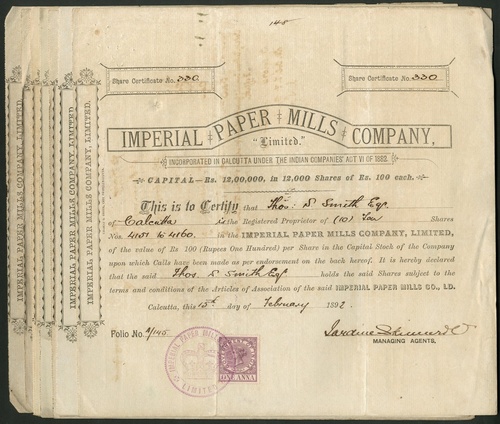 148
Share Certificate No. 330
Share Certificate No. 330
IMPERIAL PAPER MILLS COMPANY,
"Limited."
INCORPORATED IN CALCUTTA UNDER THE INDIAN COMPANIES' ACT VI OF 1882.
CAPITAL—Rs. 12,00,000, in 12,000 Shares of Rs. 100 each.
This is to Certify that Thos: S Smith Esq.
of Calcutta is the Registered Proprietor of (10) Ten Shares
Nos. 4151 to 4160. in the IMPERIAL PAPER MILLS COMPANY, LIMITED,
of the value of Rs 100 (Rupees One Hundred) per Share in the Capital Stock of the Company
upon which Calls have been made as per endorsement on the back hereof. It is hereby declared
that the said Thos. S Smith Esq holds the said Shares subject to the
terms and conditions of the Articles of Association of the said IMPERIAL PAPER MILLS CO., LD.
Calcutta, this 15th day of February 1892.
Jardine Skinner & Co
MANAGING AGENTS.
Folio No.
IMPERIAL PAPER MILLS
LIMITED
ONE ANNA
IMPERIAL PAPER MILLS COMPANY, LIMITED.
IMPERIAL PAPER MILLS COMPANY, LIMITED,
IMPERIAL PAPER MILLS COMPANY, LIMITED.